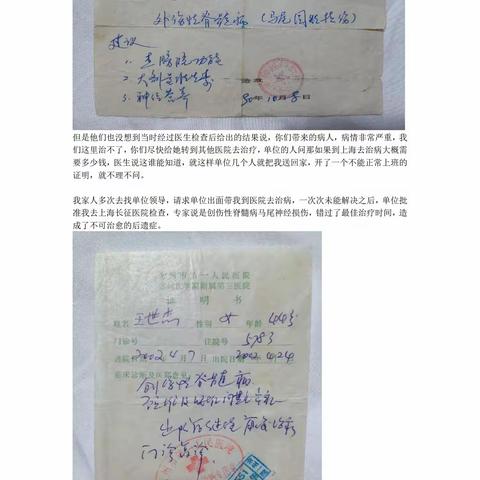 外伤性脊髓病（马尾圆锥损伤）
建议
1. 查膀胱功能
2. 大剂量维生素
3. 神经营养
90年10月8日
但是他们也没想到当时经过医生检查后给出的结果说，你们带来的病人，病情非常严重，我
们这里治不了，你们尽快给她转到其他医院去治疗，单位的人问那如果到上海去治病大概需
要多少钱，医生说这谁能知道，就这样单位几个人就把我送回家，开了一个不能正常上班的
证明，就不理不问。
我家人多次去找单位领导，请求单位出面带我到医院去治病，一次次未能解决之后，单位批
准我去上海长征医院检查，专家说是创伤性脊髓病马尾神经损伤，错过了最佳治疗时间，造
成了不可治愈的后遗症。
市第一人民医院
附属第三医院
证 明 书
姓名 王世杰 性别 女 年龄 44岁
门诊号 住院号 5783
2002年4月7日 出院日期 2002.4.24
临床诊断及医师意见
创伤性脊髓病
出院后继续
门诊复诊